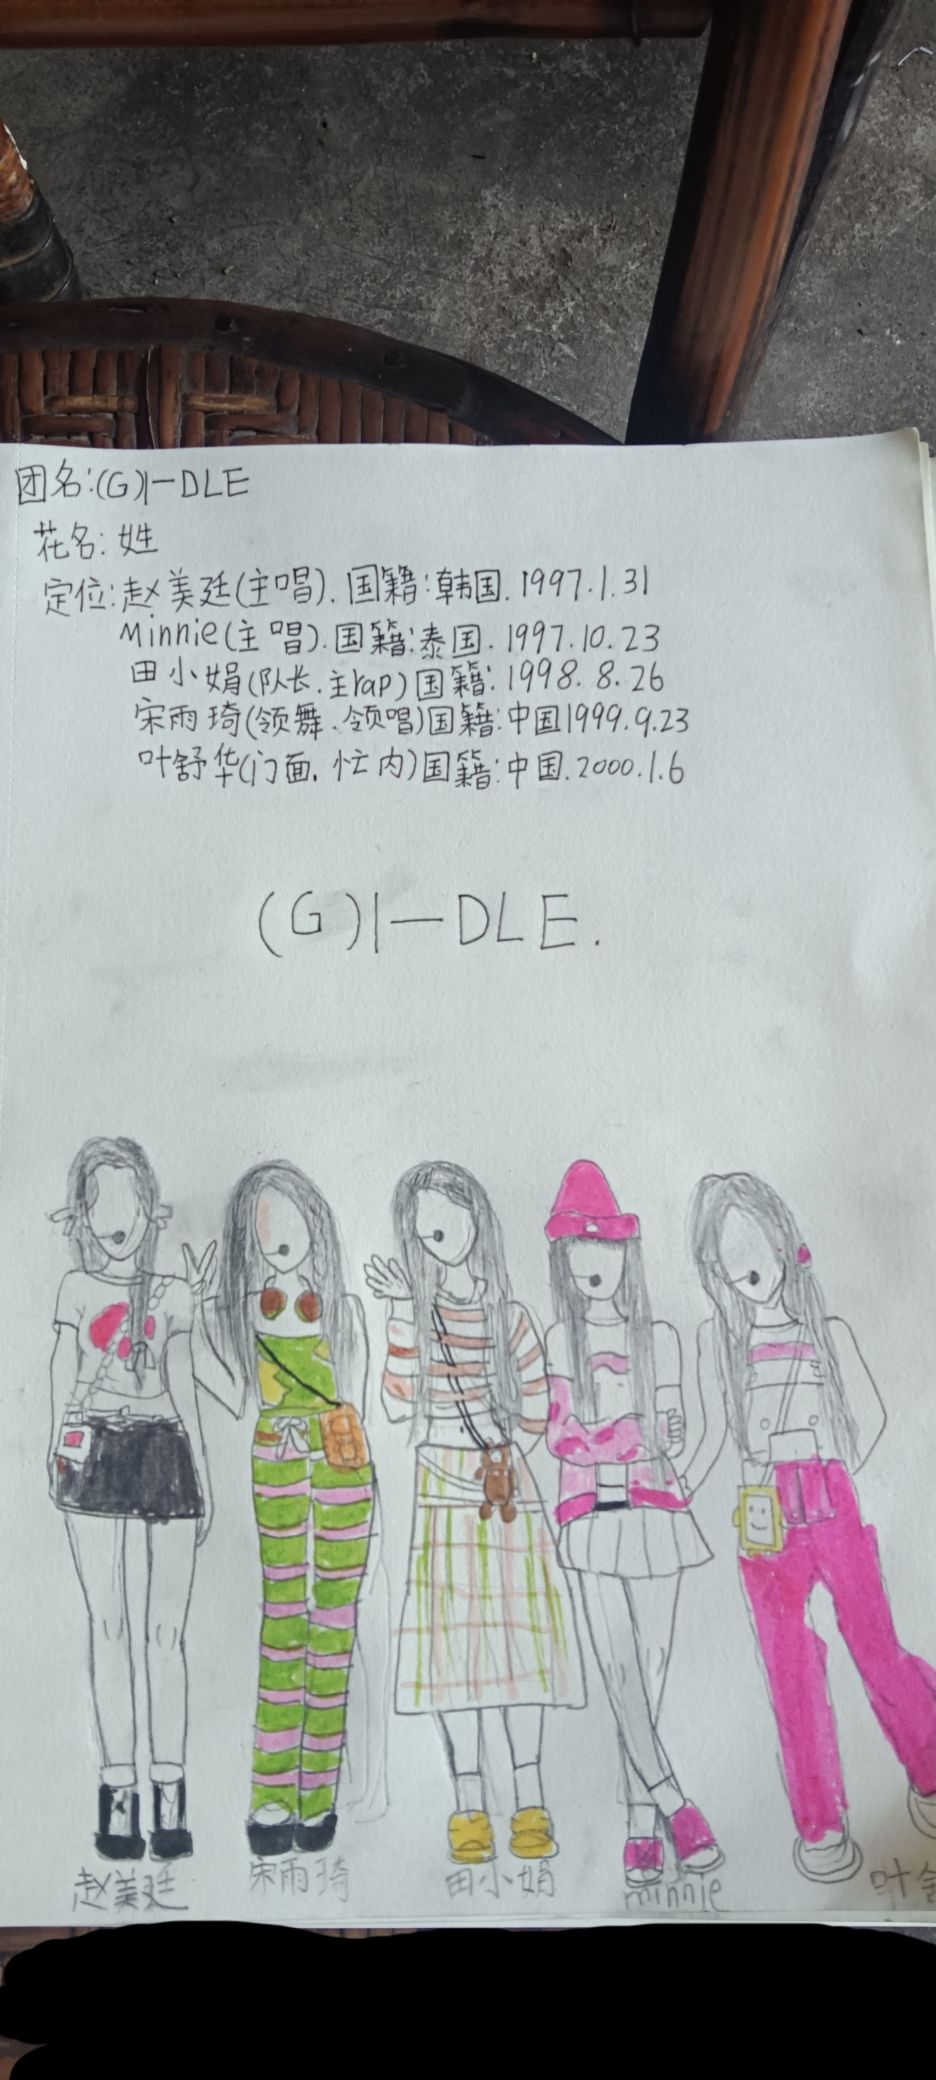 团名:(G)I-DLE
花名:姓
定位:赵美延(主唱).国籍:韩国.1997.1.31
Minnie(主唱).国籍:泰国.1997.10.23
田小娟(队长.主rap)国籍:1998.8.26
宋雨琦(领舞.领唱)国籍:中国1999.9.23
叶舒华(门面.忙内)国籍:中国.2000.1.6
(G)I-DLE.
赵美延 宋雨琦 田小娟 minnie 叶